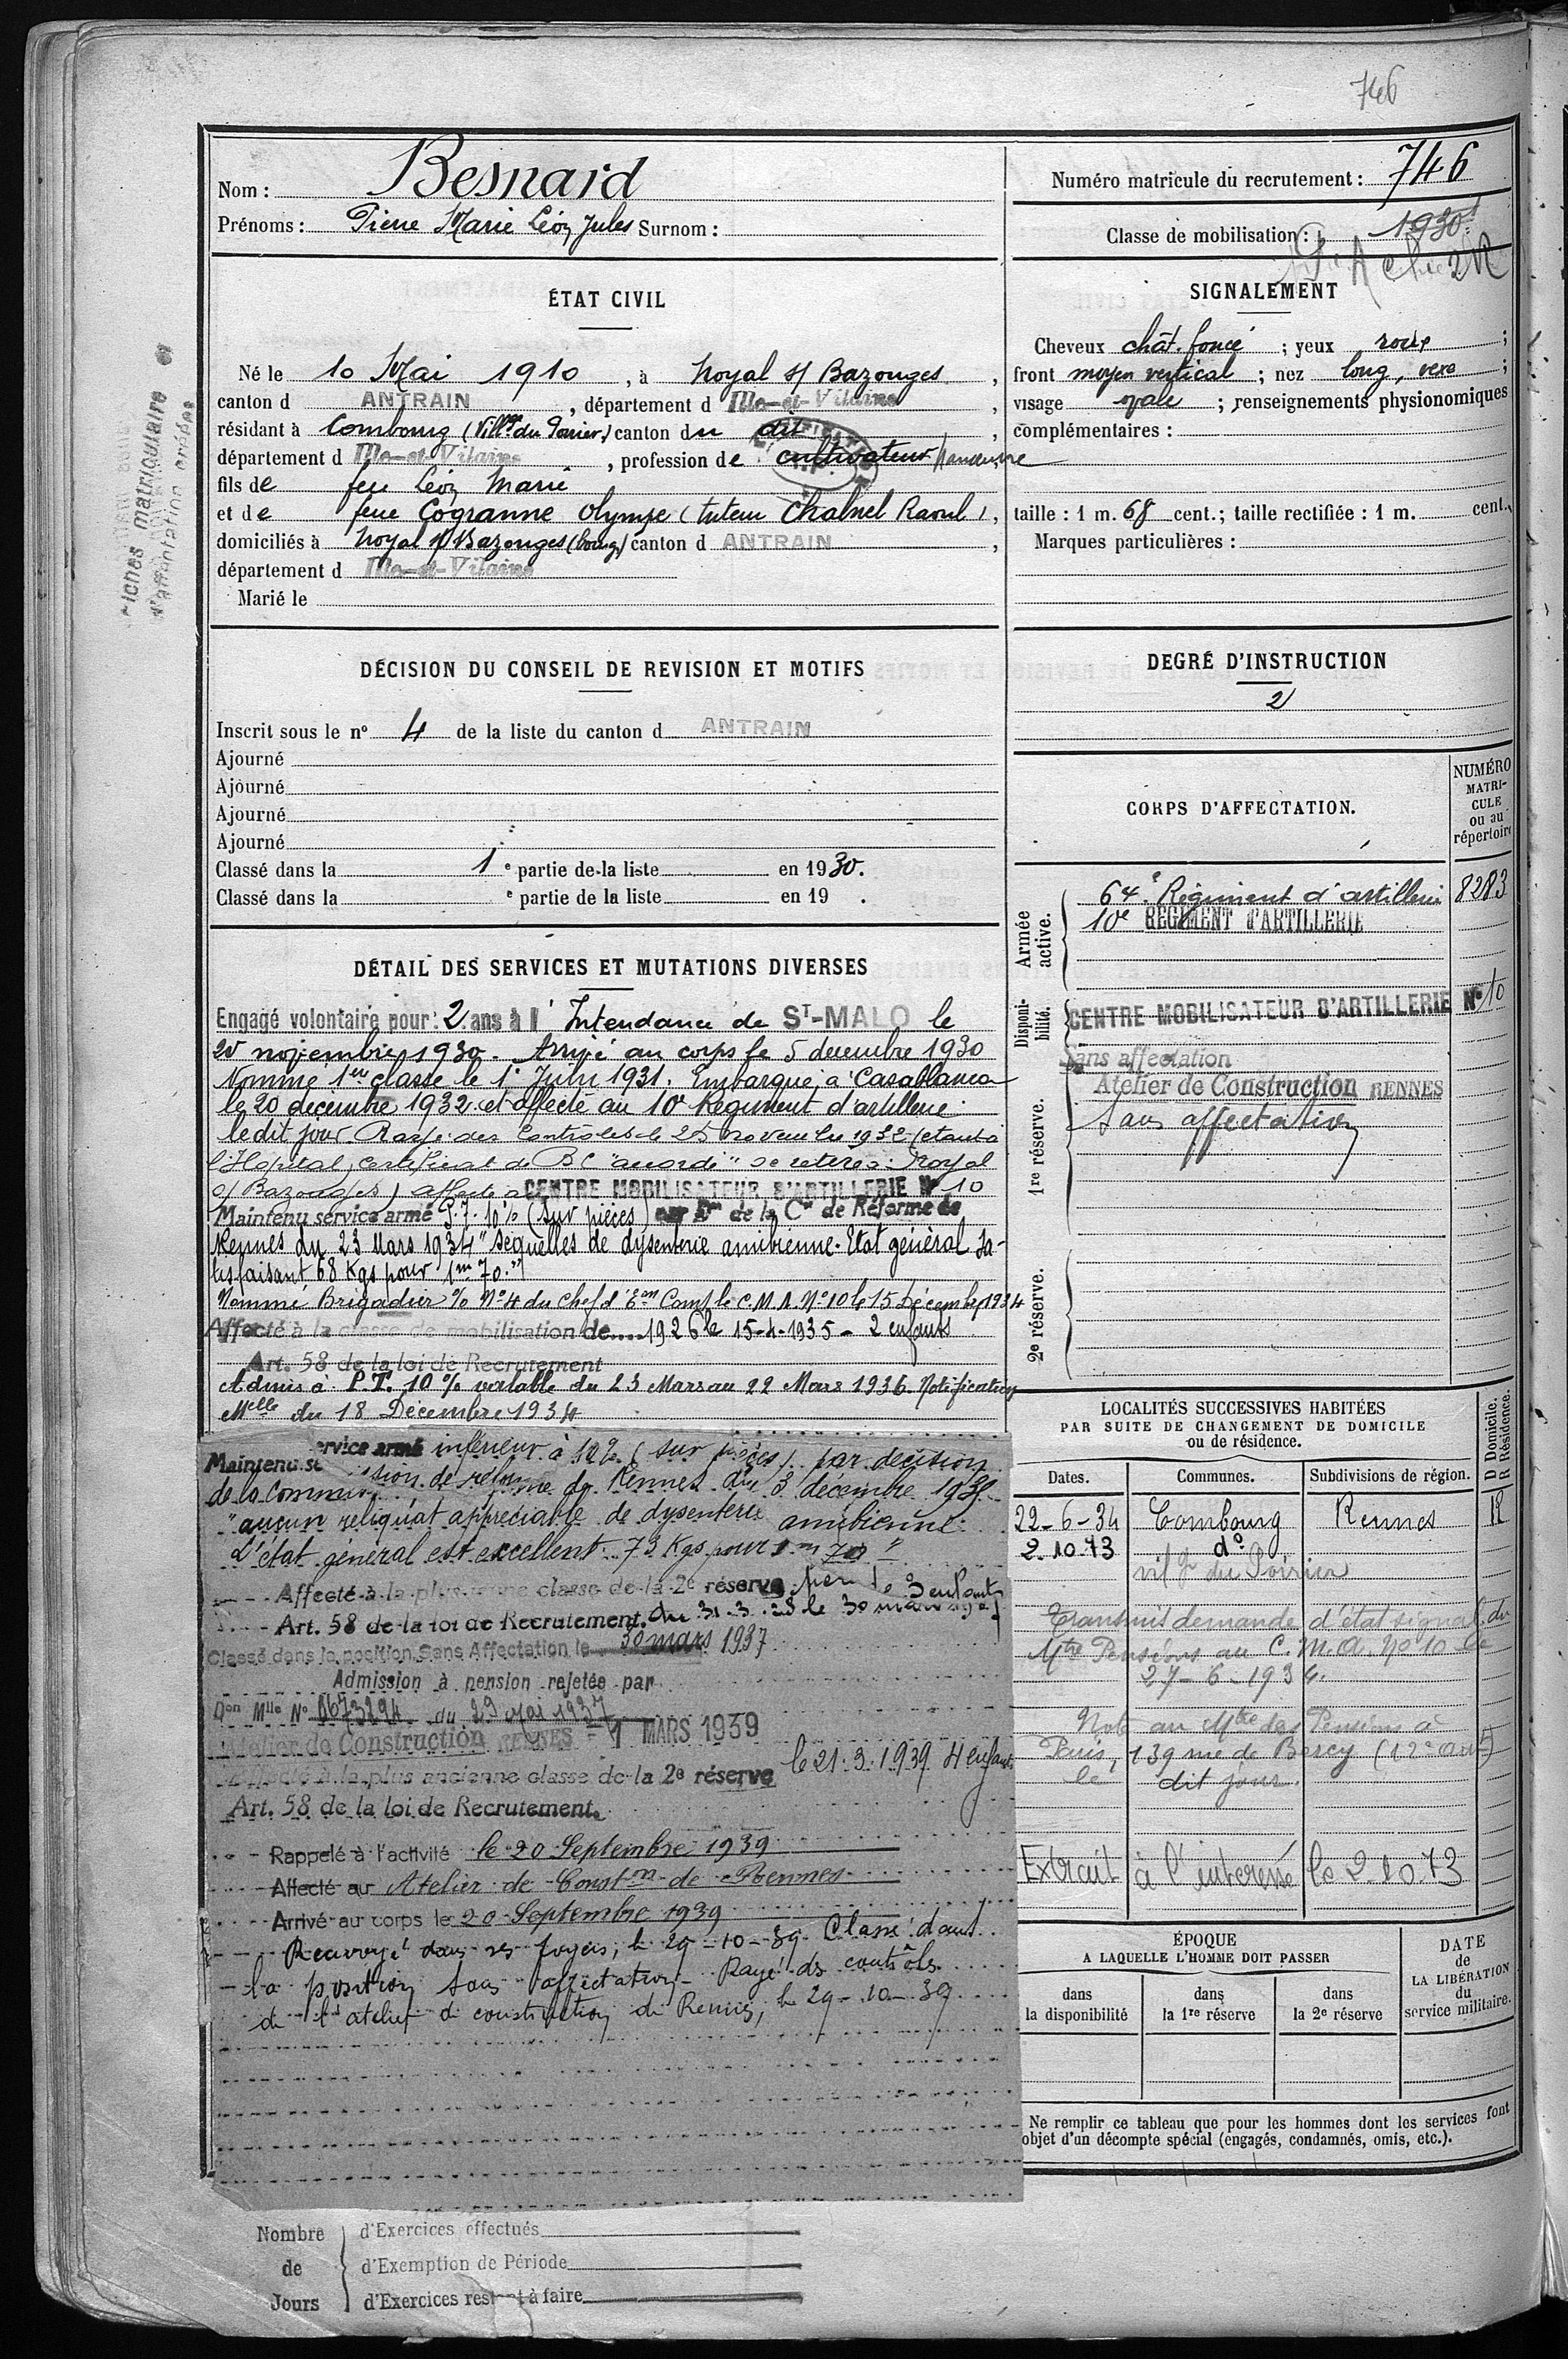 746
Nom : Besnard
Prénoms : Pierre Marie Léon Jules Surnom :
Numéro matricule du recrutement : 746
Classe de mobilisation : 1930
ÉTAT CIVIL
Né le 10 Mai 1910, à Noyal s/ Bazouges,
canton d ANTRAIN, département d Ille-et-Vilaine,
résidant à Combourg (Vill.ge du Poirier) canton du dit,
département d Ille-et-Vilaine, profession de cultivateur
fils de feu Léon Marie
et de feue Cogranne Olympe (tuteur Chalmel Raoul),
domiciliés à Noyal s/ Bazouges (bourg) canton d ANTRAIN,
département d Ille-et-Vilaine
Marié le
SIGNALEMENT
Cheveux chât. foncé ; yeux roux ;
front moyen vertical ; nez long, vexe ;
visage ovale ; renseignements physionomiques
complémentaires :
taille : 1 m. 68 cent. ; taille rectifiée : 1 m. cent.
Marques particulières :
Fiches matriculaire et
d'affectation créées
DÉCISION DU CONSEIL DE REVISION ET MOTIFS
Inscrit sous le n° 4 de la liste du canton d ANTRAIN
Ajourné
Ajourné
Ajourné
Ajourné
Classé dans la 1e partie de la liste en 1930.
Classé dans la e partie de la liste en 19 .
DEGRÉ D'INSTRUCTION
2
CORPS D'AFFECTATION.
NUMÉRO
MATRI-
CULE
ou au
répertoire
Armée active.
64e Régiment d'artillerie 8283
10e RÉGIMENT D'ARTILLERIE
Disponi-bilité.
CENTRE MOBILISATEUR D'ARTILLERIE N° 10
Sans affectation
Atelier de Construction RENNES
Sans affectation
1re réserve.
2e réserve.
DÉTAIL DES SERVICES ET MUTATIONS DIVERSES
Engagé volontaire pour : 2 ans à l'Intendance de ST-MALO le
novembre 1930. Arrivé au corps le 5 decembre 1930
Nommé 1ere classe le 1e Juin 1931. Embarqué à Casablanca
le 20 decembre 1932 et affecté au 10e Régiment d'artillerie
le dit jour Rayé des Contrôles le 25 novembre 1932 (étant à
l'Hopital, certificat de BC "accordé" se retire à Noyal
s/ Bazouges) affecté au CENTRE MOBILISATEUR D'ARTILLERIE N° 10
Maintenu service armé P.T. 10% (sur pièces) par Don de la Con de Réforme de
Rennes du 23 Mars 1934 "Séquelles de dysenterie amibienne. Etat général sa-
tisfaisant 68 Kgs pour 1m 70."
Nommé Brigadier % N°4 du Chef d'Eon Comt le C.M.A. N°10 le 15 Décembre 1934
Affecté à la classe de mobilisation de 1926 le 15-4-1935 - 2 enfants
Art. 58 de la loi de Recrutement
Admis à P.T. 10% valable du 23 Mars au 22 Mars 1936. Notification
Melle du 18 Décembre 1934
Maintenu service armé inférieur à 10% (sur pièces) par décision
de la commission de réforme de Rennes du 3 décembre
"aucun reliquat appréciable de dysenterie amibienne.
L'état général est excellent. 73 Kgs pour 1m 70"
Affecté à la plus classe de la 2e réserve 3 enfants
Art. 58 de la loi de Recrutement. du 31.3.28 le 30 mars
Classé dans la position Sans Affectation le 30 mars 1937
Admission à pension rejetée par
Don Mlle N° du 29 Mai 1937
Atelier de Construction RENNES - 1 MARS 1939
à la plus ancienne classe de la 2e réserve le 21.3.1939 4 enfants
Art. 58 de la loi de Recrutement.
Rappelé à l'activité le 20 Septembre 1939
Affecté au Atelier de Constron de Rennes
Arrivé au corps le 20 Septembre 1939
Renvoyé dans ses foyers, le 29-10-39. Classé dans
la position sans affectation. Rayé des contrôles
de l'atelier de construction de Rennes, le 29-10-39.
LOCALITÉS SUCCESSIVES HABITÉES
PAR SUITE DE CHANGEMENT DE DOMICILE
ou de résidence.
D Domicile.
R Résidence.
Dates. Communes. Subdivisions de région.
22-6-34 Combourg Rennes R
2.10.73 d°
vilge du Poirier
Transmis demande d'état signal. du
Mtre Pensions au C.M.A. N°10 le
27-6-1934.
Note au Mtre des Pensions à
Paris, 139 rue de Bercy (12e Art)
le dit jour.
Extrait à l'interessé le 2.10.73
ÉPOQUE
A LAQUELLE L'HOMME DOIT PASSER
dans la disponibilité
dans la 1re réserve
dans la 2e réserve
DATE
de
LA LIBÉRATION
du
service militaire.
Ne remplir ce tableau que pour les hommes dont les services font
objet d'un décompte spécial (engagés, condamnés, omis, etc.).
Nombre de Jours
d'Exercices effectués
d'Exemption de Période
d'Exercices restant à faire